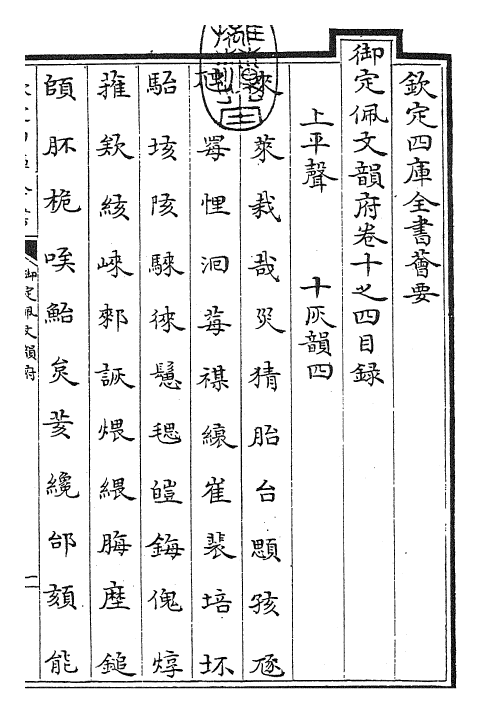 欽定四庫全書薈要
御定佩文韻府卷十之四目録
上平聲　十灰韻四
來萊栽哉災猜胎台顋孩豗
虺罤悝洄莓禖縗崔裴培坏
駘垓陔騋徠鬛毸皚鋂傀焞
蓷欸絯崍郲詼煨緦脢塺鎚
䫦肧桅唉鮐㚊荄纔邰頦能
御定佩文韻府